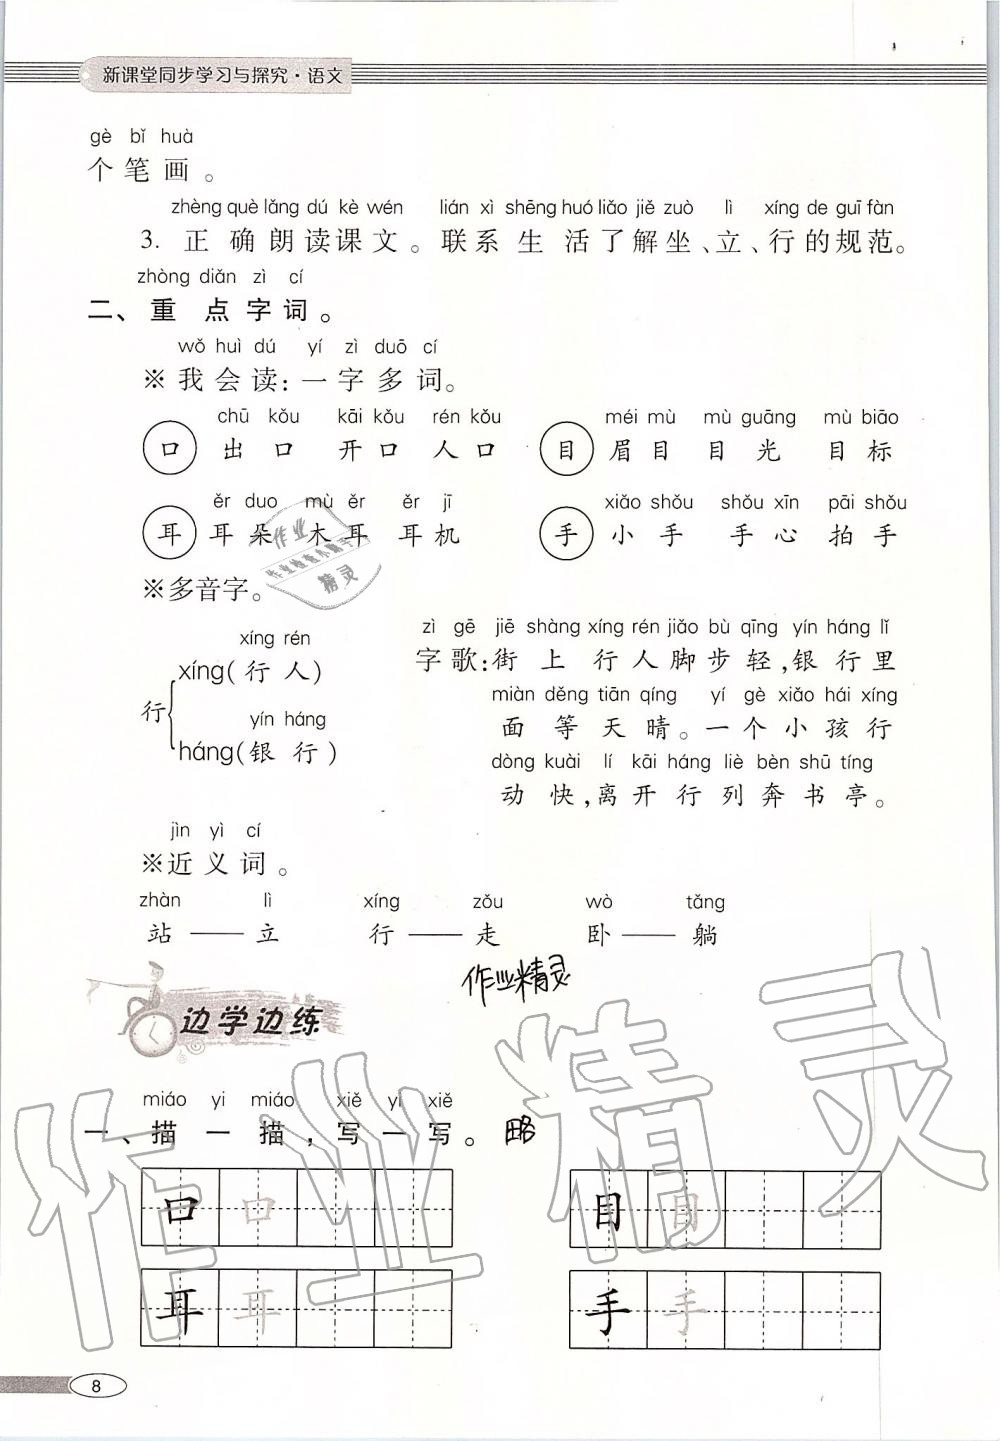 新课堂同步学习与探究·语文
gè bǐ huà
个笔画。
zhèng què lǎng dú kè wén lián xì shēng huó liǎo jiě zuò lì xíng de guī fàn
3. 正确朗读课文。联系生活了解坐、立、行的规范。
zhòng diǎn zì cí
二、重点字词。
wǒ huì dú yí zì duō cí
※我会读:一字多词。
chū kǒu kāi kǒu rén kǒu méi mù mù guāng mù biāo
口 出口 开口 人口 目 眉目 目光 目标
ěr duo mù ěr ěr jī xiǎo shǒu shǒu xīn pāi shǒu
耳 耳朵 木耳 耳机 手 小手 手心 拍手
※多音字。
xíng rén
xíng(行人)
行
yín háng
háng(银行)
zì gē jiē shàng xíng rén jiǎo bù qīng yín háng lǐ
字歌:街上行人脚步轻,银行里
miàn děng tiān qíng yí gè xiǎo hái xíng
面等天晴。一个小孩行
dòng kuài lí kāi háng liè bèn shū tíng
动快,离开行列奔书亭。
jìn yì cí
※近义词。
zhàn lì xíng zǒu wò tǎng
站——立 行——走 卧——躺
作业精灵
边学边练
miáo yi miáo xiě yi xiě
一、描一描,写一写。 略
口 口 目 目
耳 耳 手 手
8
作业精灵
作业
作业检查小助手
精灵